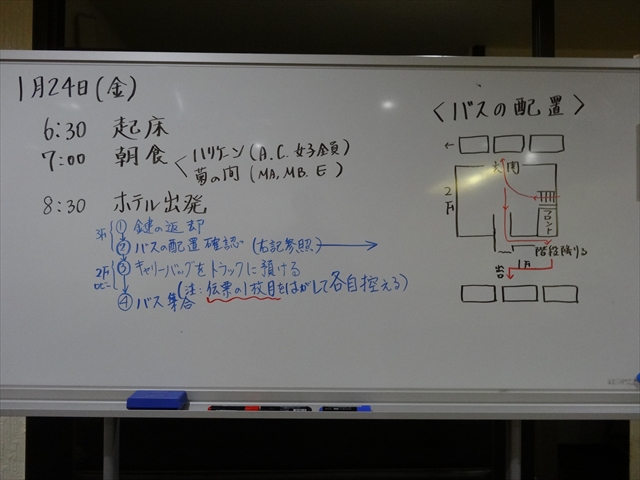 1月24日(金)
6:30 起床
7:00 朝食
ハリケーン(A.C.女子全員)
菊の間(MA,MB.E)
8:30 ホテル出発
① 鍵の返却
② バスの配置確認(右記参照)
2F ロビー
③ キャリーバッグをトラックに預ける
(注:伝票の1枚目をはがして各自控える)
④ バス集合
<バスの配置>
玄関
2F
フロント
階段降りる
1F
出口